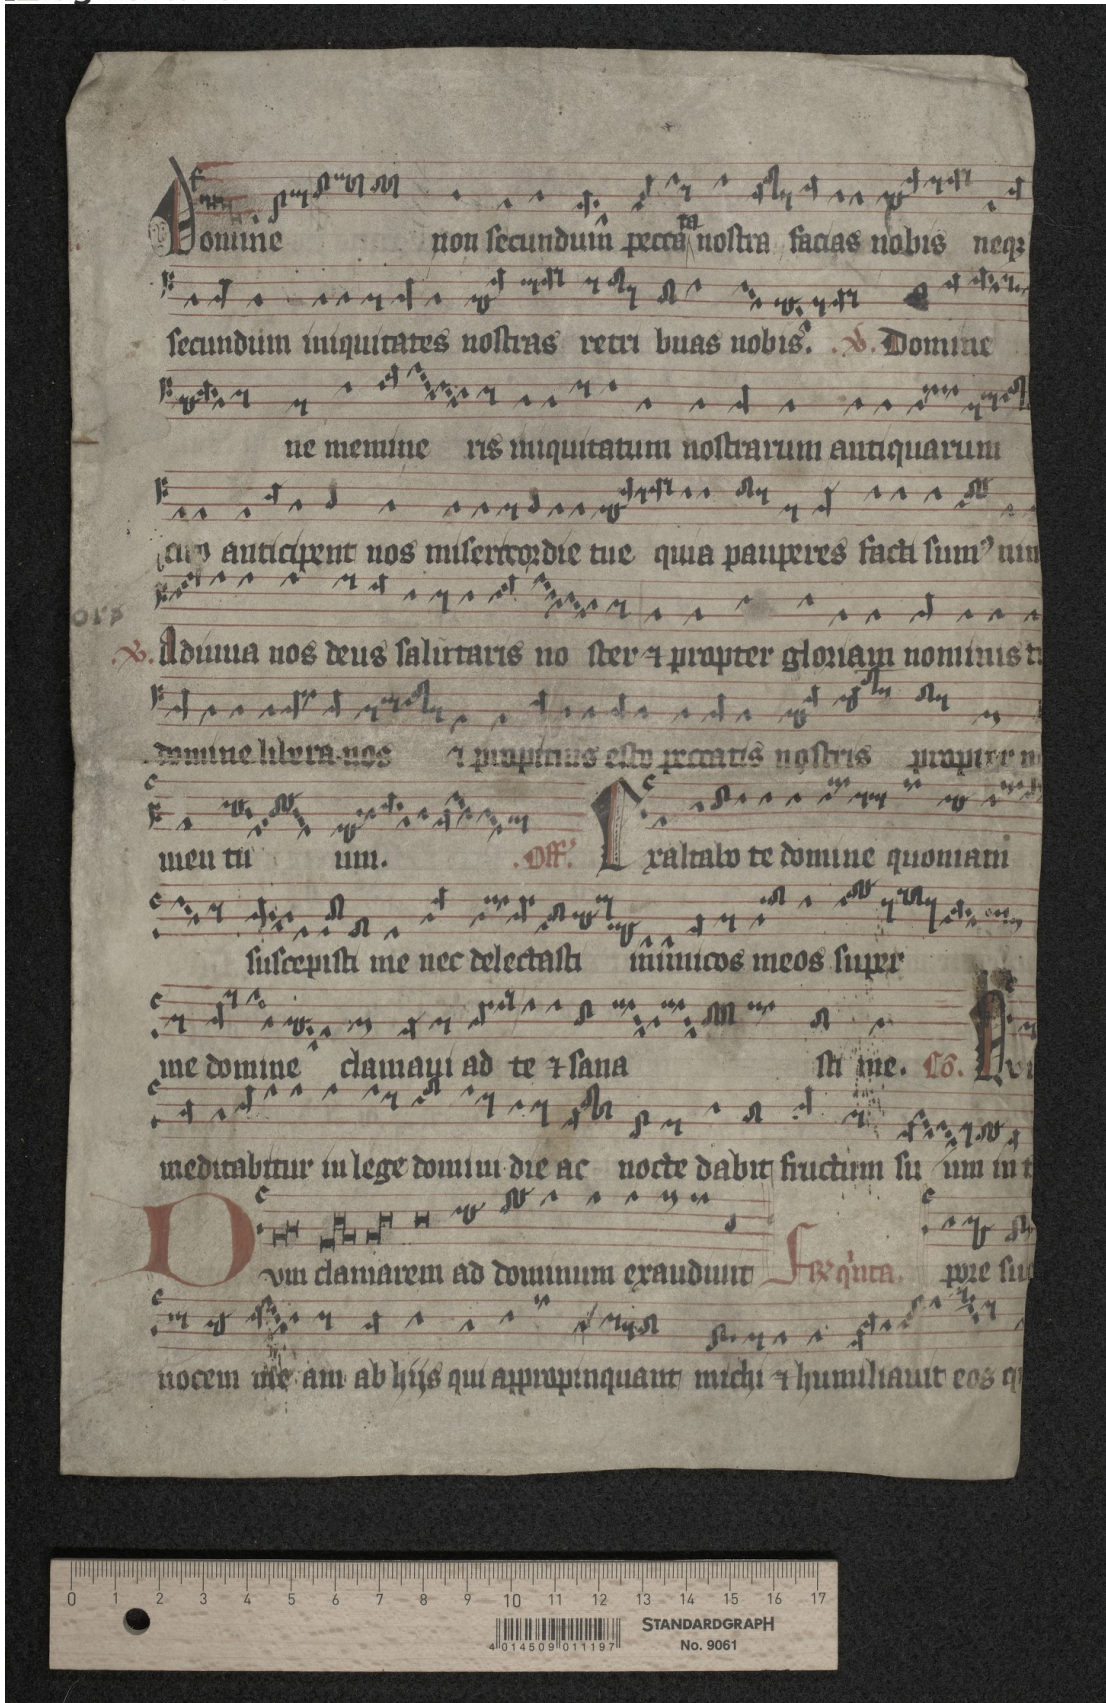 Domine non secundum pecca ta nostra facias nobis neqz
secundum iniquitates nostras retri buas nobis. .V. Domine
ne memine ris iniquitatum nostrarum antiquarum
cito anticipent nos misericordie tue quia pauperes facti sumꝰ nim
.V. Adiuua nos deus salutaris no ster ⁊ propter gloriam nominis t
domine libera nos ⁊ propitius esto peccatis nostris propter n
men tu um. .Off. Exaltabo te domine quoniam
suscepisti me nec delectasti inimicos meos super
me domine clamaui ad te ⁊ sana sti me. Co.
meditabitur in lege domini die ac nocte dabit fructum su um in t
Dum clamarem ad dominum exaudiuit pore su
uocem me am ab hijs qui appropinquant michi ⁊ humiliauit eos q
0 1 2 3 4 5 6 7 8 9 10 11 12 13 14 15 16 17
STANDARDGRAPH
4 014509 011197
No. 9061